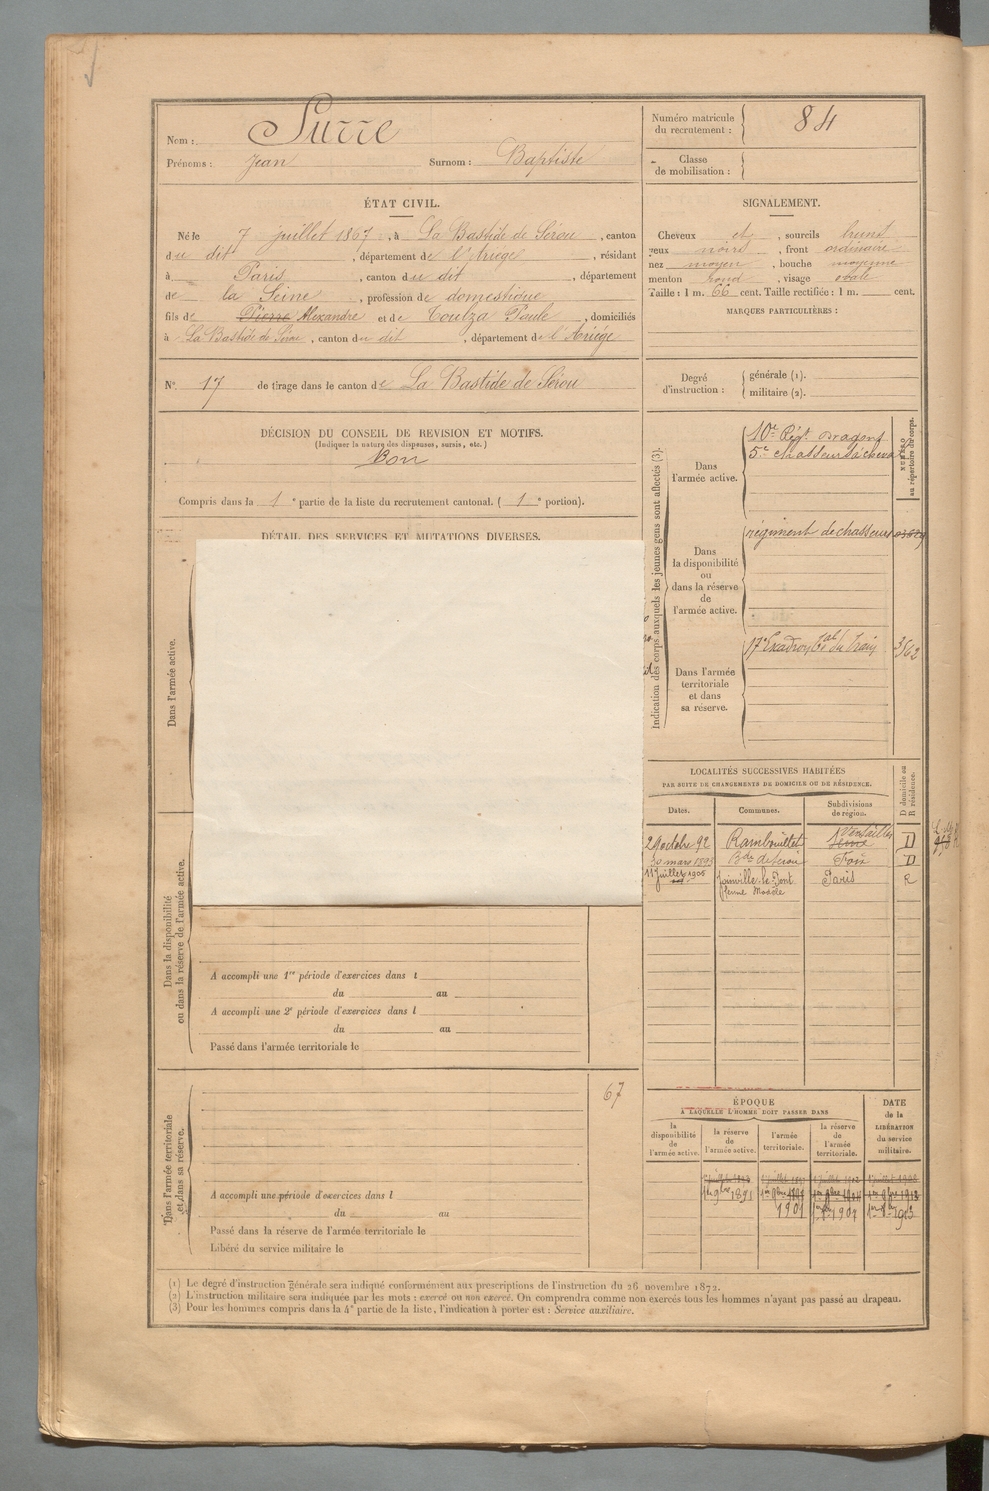 Nom : Surre
Prénoms : Jean Surnom : Baptiste
Numéro matricule du recrutement : 84
Classe de mobilisation :
ÉTAT CIVIL.
Né le 7 juillet 1867, à La Bastide de Sérou, canton
du dit, département de l'Ariége, résidant
à Paris, canton du dit, département
de la Seine, profession de domestique
fils de Pierre Alexandre et de Toulza Paule, domiciliés
à La Bastide de Sérou, canton du dit, département de l'Ariége
SIGNALEMENT.
Cheveux et, sourcils bruns
yeux noirs, front ordinaire
nez moyen, bouche moyenne
menton rond, visage ovale
Taille : 1 m. 66 cent. Taille rectifiée : 1 m. cent.
MARQUES PARTICULIÈRES :
N° 17 de tirage dans le canton de La Bastide de Sérou
Degré d'instruction : générale (1).
militaire (2).
DÉCISION DU CONSEIL DE REVISION ET MOTIFS.
(Indiquer la nature des dispenses, sursis, etc.)
Bon
Compris dans la 1e partie de la liste du recrutement cantonal. (1e portion).
DÉTAIL DES SERVICES ET MUTATIONS DIVERSES.
Dans l'armée active.
Dans la disponibilité
ou dans la réserve de l'armée active.
A accompli une 1re période d'exercices dans l
du au
A accompli une 2e période d'exercices dans l
du au
Passé dans l'armée territoriale le
Dans l'armée territoriale
et dans sa réserve.
67
A accompli une période d'exercices dans l
du au
Passé dans la réserve de l'armée territoriale le
Libéré du service militaire le
Indication des corps auxquels les jeunes gens sont affectés (3).
NUMÉRO
au répertoire du corps.
Dans
l'armée active.
10e Régt Dragons
5e chasseurs à cheval
Dans
la disponibilité
ou
dans la réserve
de
l'armée active.
régiment de chasseurs
Dans l'armée
territoriale
et dans
sa réserve.
17e Escadron tal du train
LOCALITÉS SUCCESSIVES HABITÉES
PAR SUITE DE CHANGEMENTS DE DOMICILE OU DE RÉSIDENCE.
D domicile ou
R résidence.
Dates. Communes. Subdivisions de région.
29 octobre 92 Rambouillet Seine Versailles D
30 mars 1893 Bde de Serou Foix D
11 juillet 1905 Joinville-le-Pont Paris R
ÉPOQUE
À LAQUELLE L'HOMME DOIT PASSER DANS
DATE
de la
LIBÉRATION
du service
militaire.
la disponibilité de l'armée active.
la réserve de l'armée active.
l'armée territoriale.
la réserve de l'armée territoriale.
1er 9bre 1891
1901
(1) Le degré d'instruction générale sera indiqué conformément aux prescriptions de l'instruction du 26 novembre 1872.
(2) L'instruction militaire sera indiquée par les mots : exercé ou non exercé. On comprendra comme non exercés tous les hommes n'ayant pas passé au drapeau.
(3) Pour les hommes compris dans la 4e partie de la liste, l'indication à porter est : Service auxiliaire.